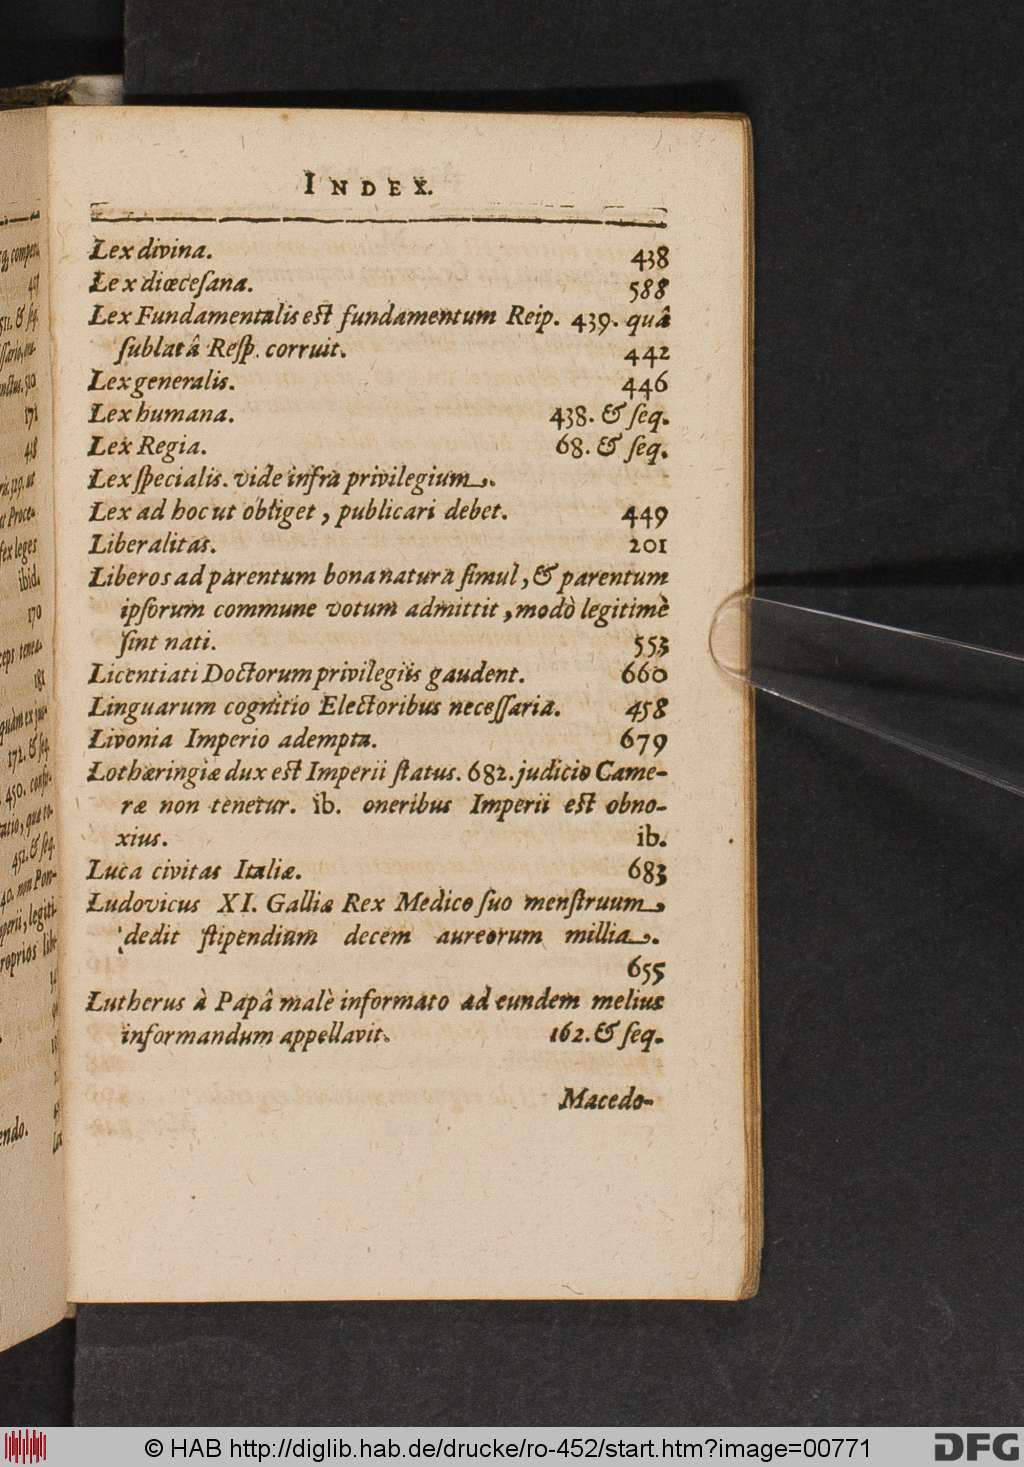 INDEX.
Lex divina. 438
Lex diœceſana. 588
Lex Fundamentalis est fundamentum Reip. 439. quâ
ſublatâ Reſp. corruit. 442
Lex generalis. 446
Lex humana. 438. & ſeq.
Lex Regia. 68. & ſeq.
Lex ſpecialis. vide infrà privilegium.
Lex ad hoc ut obliget, publicari debet. 449
Liberalitas. 201
Liberos ad parentum bona natura ſimul, & parentum
ipſorum commune votum admittit, modò legitimè
ſint nati. 553
Licentiati Doctorum privilegiis gaudent. 660
Linguarum cognitio Electoribus neceſſaria. 458
Livonia Imperio adempta. 679
Lothæringiæ dux est Imperii ſtatus. 682. judicio Came-
ræ non tenetur. ib. oneribus Imperii est obno-
xius. ib.
Luca civitas Italiæ. 683
Ludovicus XI. Galliæ Rex Medico ſuo menſtruum,
dedit ſtipendium decem aureorum millia.
655
Lutherus à Papâ malè informato ad eundem melius
informandum appellavit. 162. & ſeq.
Macedo-
ibid.
170
181
172. & ſeq.
452. & ſeq.
endo.
© HAB http://diglib.hab.de/drucke/ro-452/start.htm?image=00771
DFG